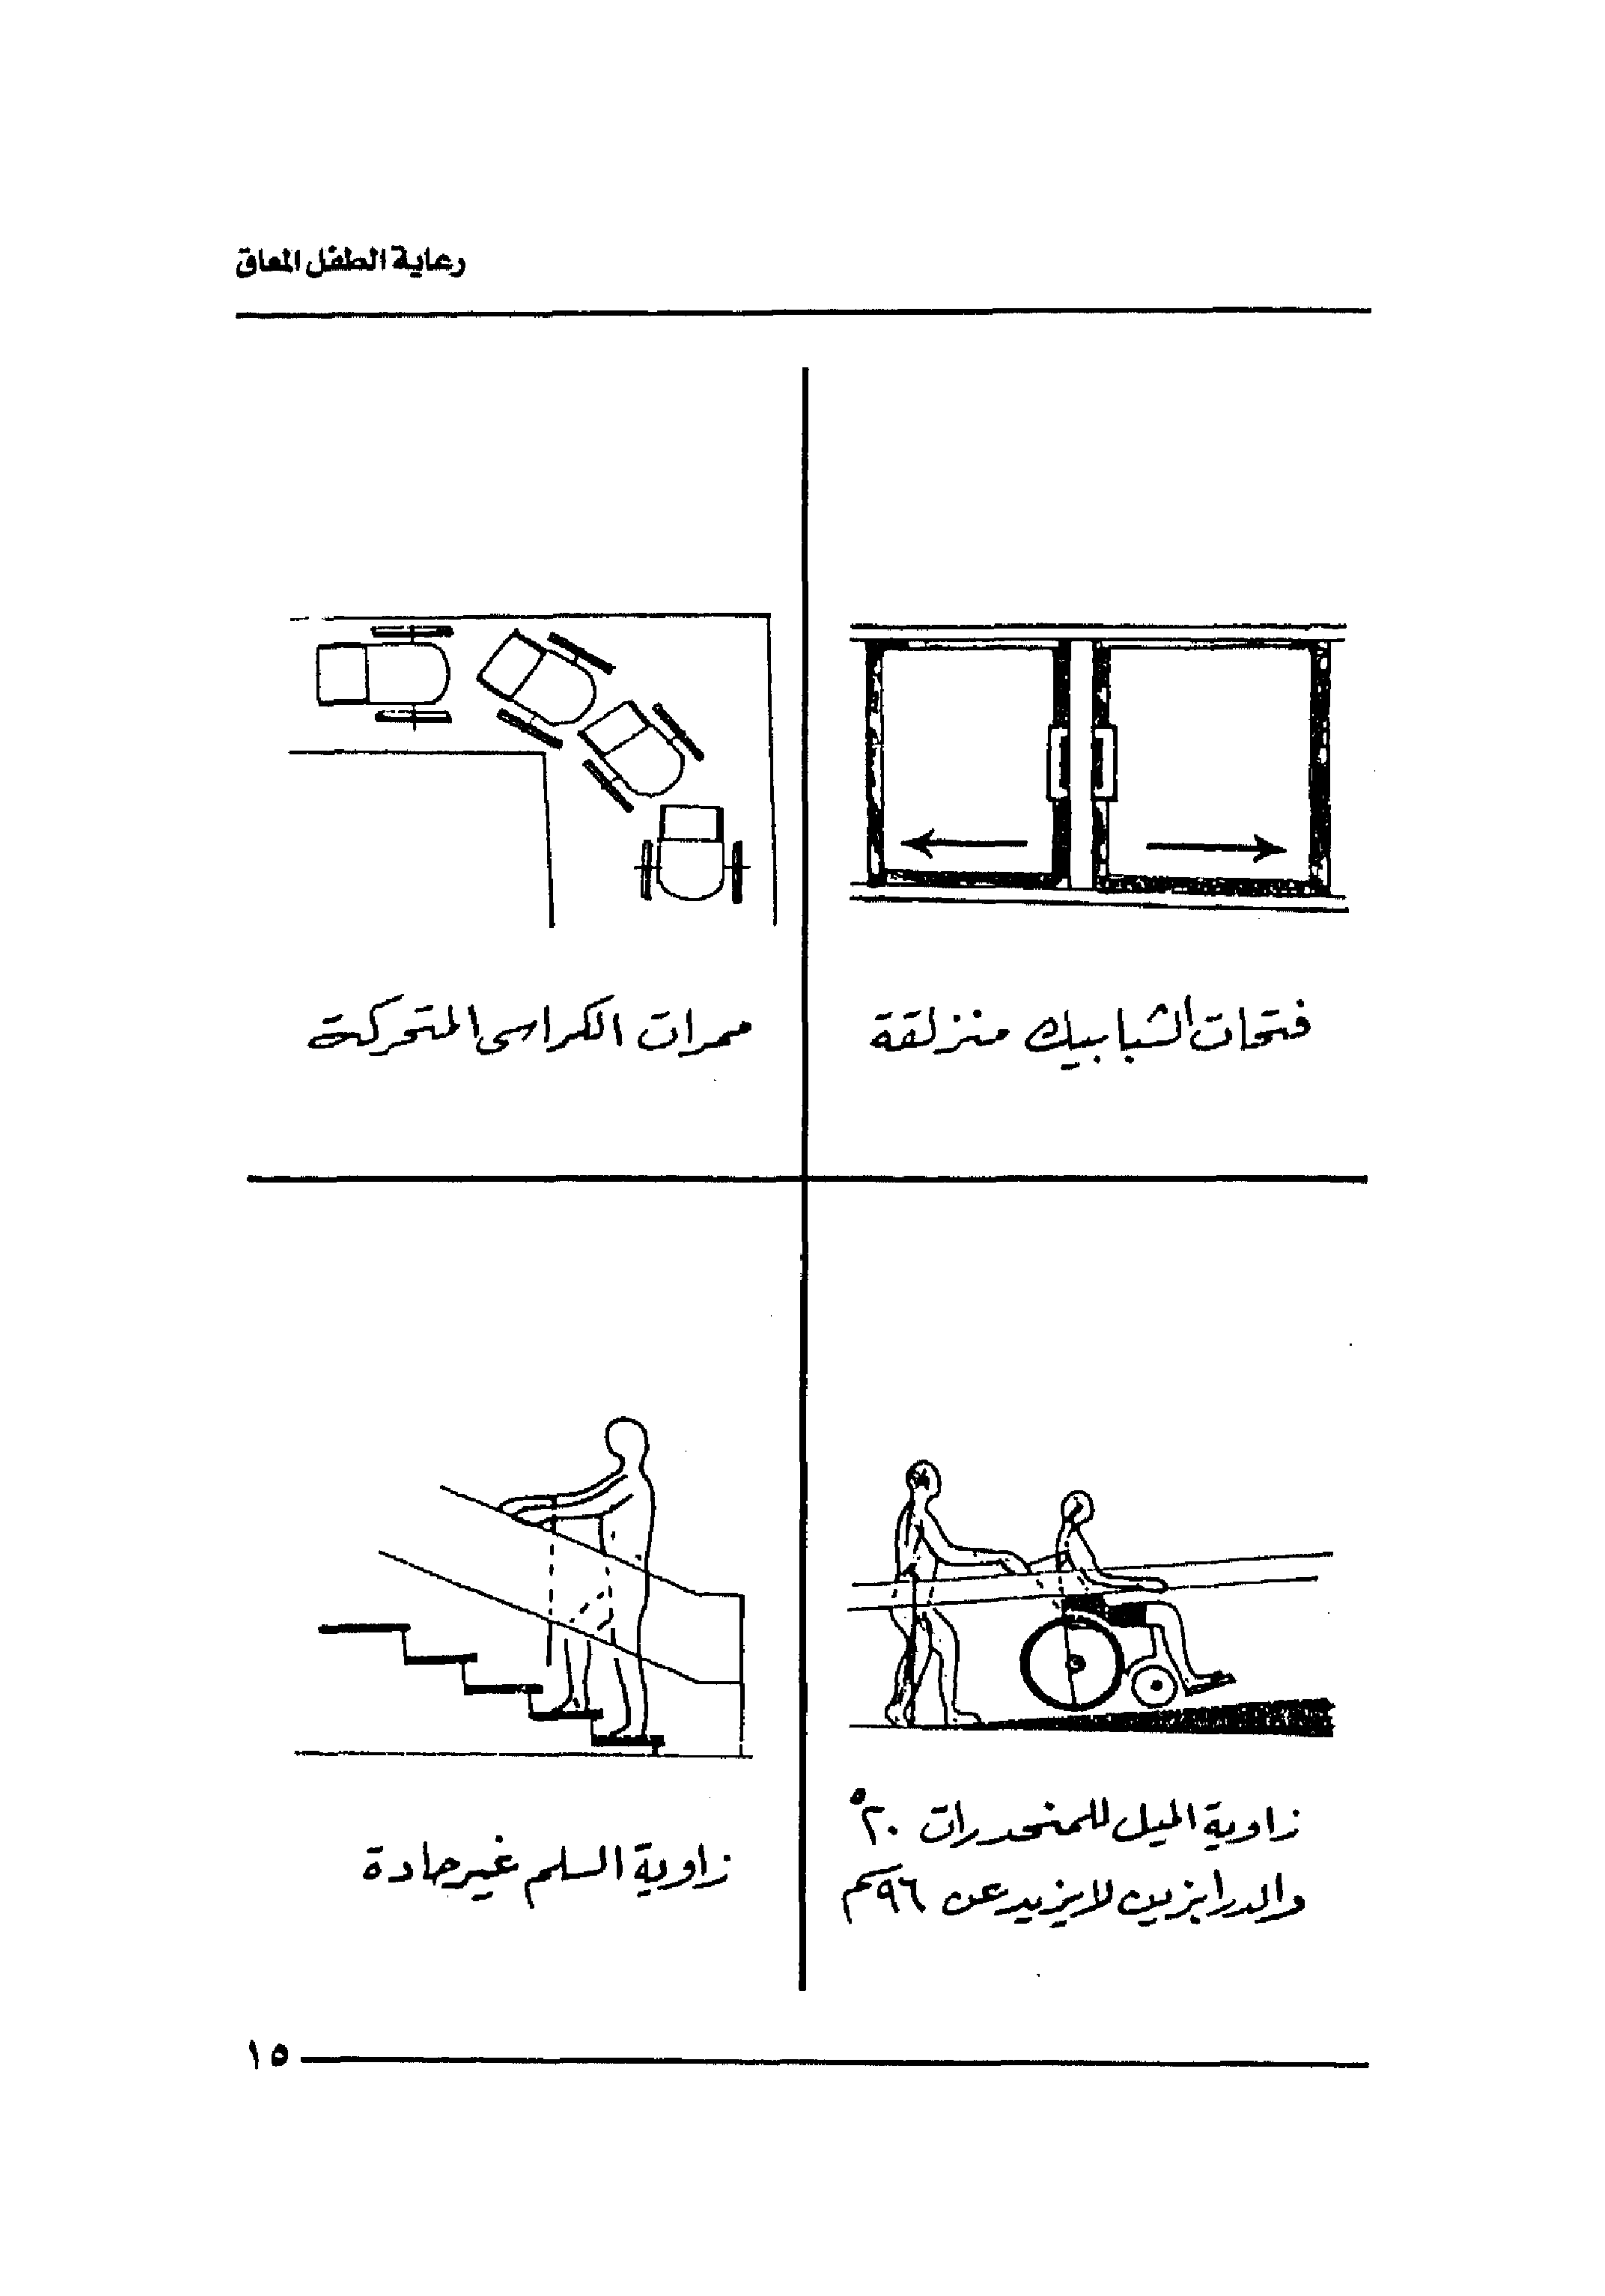 رعاية الطفل المعاق
فتحات الشبابيك منزلقة
ممرات الكراسى المتحركة
زاوية الميل للمنحدرات ٢٠°
والدرابزين لايزيد عن ٩٦سم
زاوية السلم غير حادة
١٥